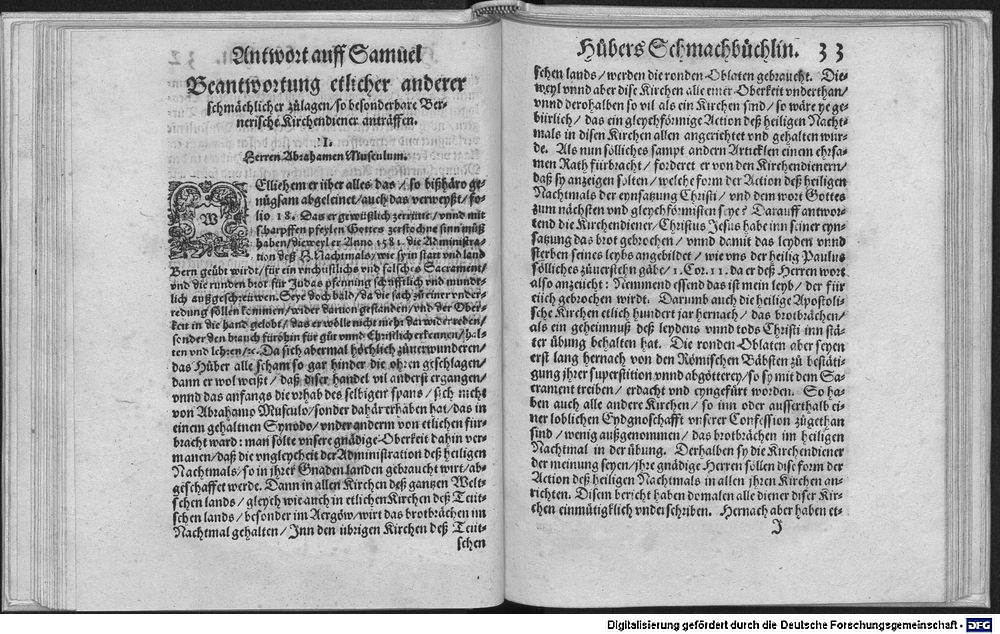 Antwort auff Samuel
Beantwortung etlicher anderer
schmächlicher zůlagen / so besonderbare Ber-
nerische Kirchendiener anträffen.
I.
Herren Abrahamen Musculum.
WEllichem er über alles das / so bißhäro ge-
nůgsam abgeleinet / auch das verweyßt / fo-
lio 18. Das er gewüßlich zerrütte / vnnd mit
scharpffen pfeylen Gottes zerstochne sinn můß
haben / dieweyl er Anno 1581. die Administra-
tion deß H. Nachtmals / wie sy in statt vnd land
Bern geübt wirdt / für ein vnchristlichs vnd falsches Sacrament /
vnd die runden brot für Judas pfenning schrifftlich vnd mund-
lich außgeschreuwen. Seye doch bald / da die sach zů einer vnder-
redung söllen kommen / wider daruon gestanden / vnd der Ober-
keit in die hand gelobt / das er wölle nicht mehr darwider reden /
sonder den brauch fürohin für gůt vnnd Christlich erkennen / hal-
ten vnd lehren / ꝛc. Da sich abermal höchlich zůuerwunderen /
das Hůber alle scham so gar hinder die ohren geschlagen /
dann er wol weißt / daß diser handel vil anderst ergangen /
vnnd das anfangs die vrhab des selbigen spans / sich nicht
von Abrahamo Musculo / sonder dahär erhaben hat / das in
einem gehaltnen Synodo / vnder anderm von etlichen für-
bracht ward: man sölte vnsere gnädige Oberkeit dahin ver-
manen / daß die vngleycheit der Administration deß heiligen
Nachtmals / so in jhrer Gnaden landen gebraucht wirt / ab-
geschaffet werde. Dann in allen Kirchen deß gantzen Welt-
schen lands / gleych wie auch in etlichen Kirchen deß Teüt-
schen lands / besonder im Aergöw / wirt das brotbrächen im
Nachtmal gehalten / Jnn den übrigen Kirchen deß Teüt-
schen
Hůbers Schmachbüchlin. 33
schen lands / werden die ronden Oblaten gebraucht. Die-
weyl vnnd aber dise Kirchen alle einer Oberkeit vnderthan /
vnnd derohalben so vil als ein Kirchen sind / so wäre ye ge-
bürlich / das ein gleychförmige Action deß heiligen Nacht-
mals in disen Kirchen allen angerichtet vnd gehalten wur-
de. Als nun sölliches sampt andern Articklen einem ehrsa-
men Rath fürbracht / forderet er von den Kirchendienern /
daß sy anzeigen solten / welche form der Action deß heiligen
Nachtmals der eynsatzung Christi / vnd dem wort Gottes
zum nächsten vnd gleychförmisten seye? Darauff antwor-
tend die Kirchendiener / Christus Jesus habe inn seiner eyn-
satzung das brot gebrochen / vnnd damit das leyden vnnd
sterben seines leybs angebildet / wie vns der heilig Paulus
sölliches zůuerstehn gäbe / 1. Cor. 11. da er deß Herren wort
also anzeicht: Nemmend essend das ist mein leyb / der für
eüch gebrochen wirdt. Darumb auch die heilige Apostoli-
sche Kirchen etlich hundert jar hernach / das brotbrächen /
als ein geheimnuß deß leydens vnnd tods Christi inn stä-
ter übung behalten hat. Die ronden Oblaten aber seyen
erst lang hernach von den Römischen Bäbsten zů bestäti-
gung jhrer superstition vnnd abgötterey / so sy mit dem Sa-
crament treiben / erdacht vnd eyngefürt worden. So ha-
ben auch alle andere Kirchen / so inn oder ausserthalb ei-
ner loblichen Eydgnoschafft vnserer Confession zůgethan
sind / wenig außgenommen / das brotbrächen im heiligen
Nachtmal in der übung. Derhalben sy die Kirchendiener
der meinung seyen / jhre gnädige Herren söllen dise form der
Action deß heiligen Nachtmals in allen jhren Kirchen an-
richten. Disem bericht haben domalen alle diener diser Kir-
chen einmütigklich vnderschriben. Hernach aber haben et-
J
Digitalisierung gefördert durch die Deutsche Forschungsgemeinschaft - DFG